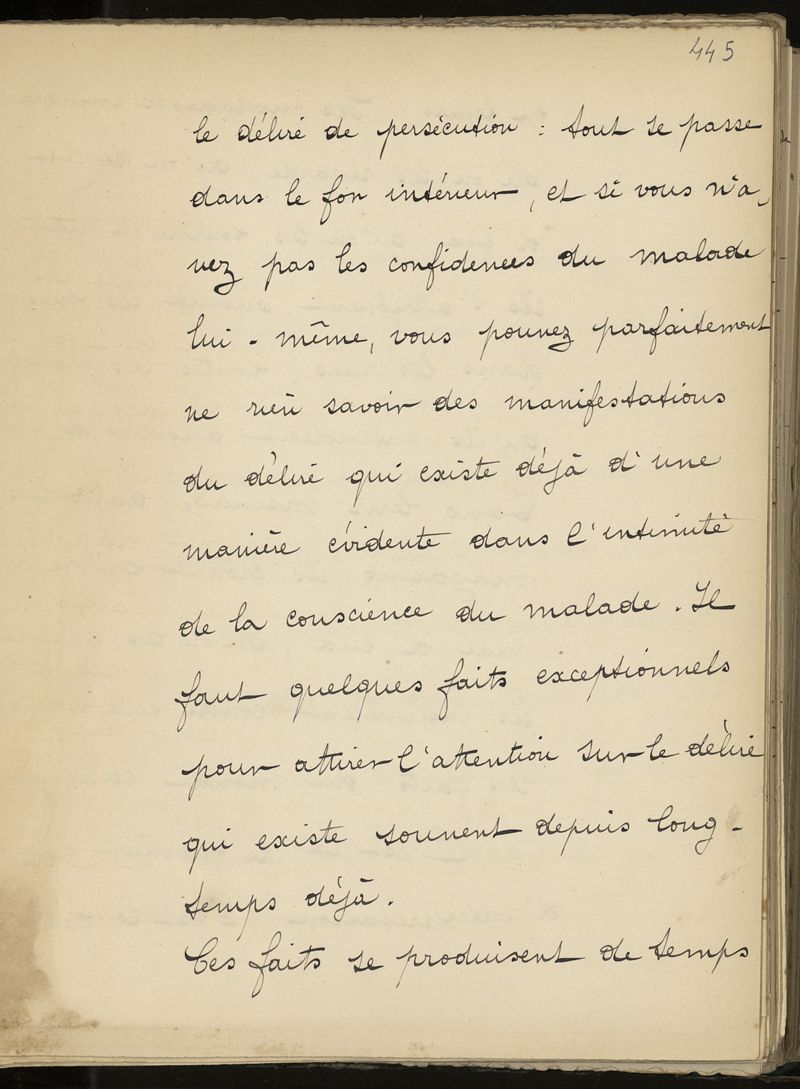 445
le délire de persécution : tout se passe
dans le for intérieur, et si vous n'a-
vez pas les confidences du malade
lui-même, vous pouvez parfaitement
ne rien savoir des manifestations
du délire qui existe déjà d'une
manière évidente dans l'intimité
de la conscience du malade. Il
faut quelques faits exceptionnels
pour attirer l'attention sur le délire
qui existe souvent depuis long-
temps déjà.
Ces faits se produisent de temps